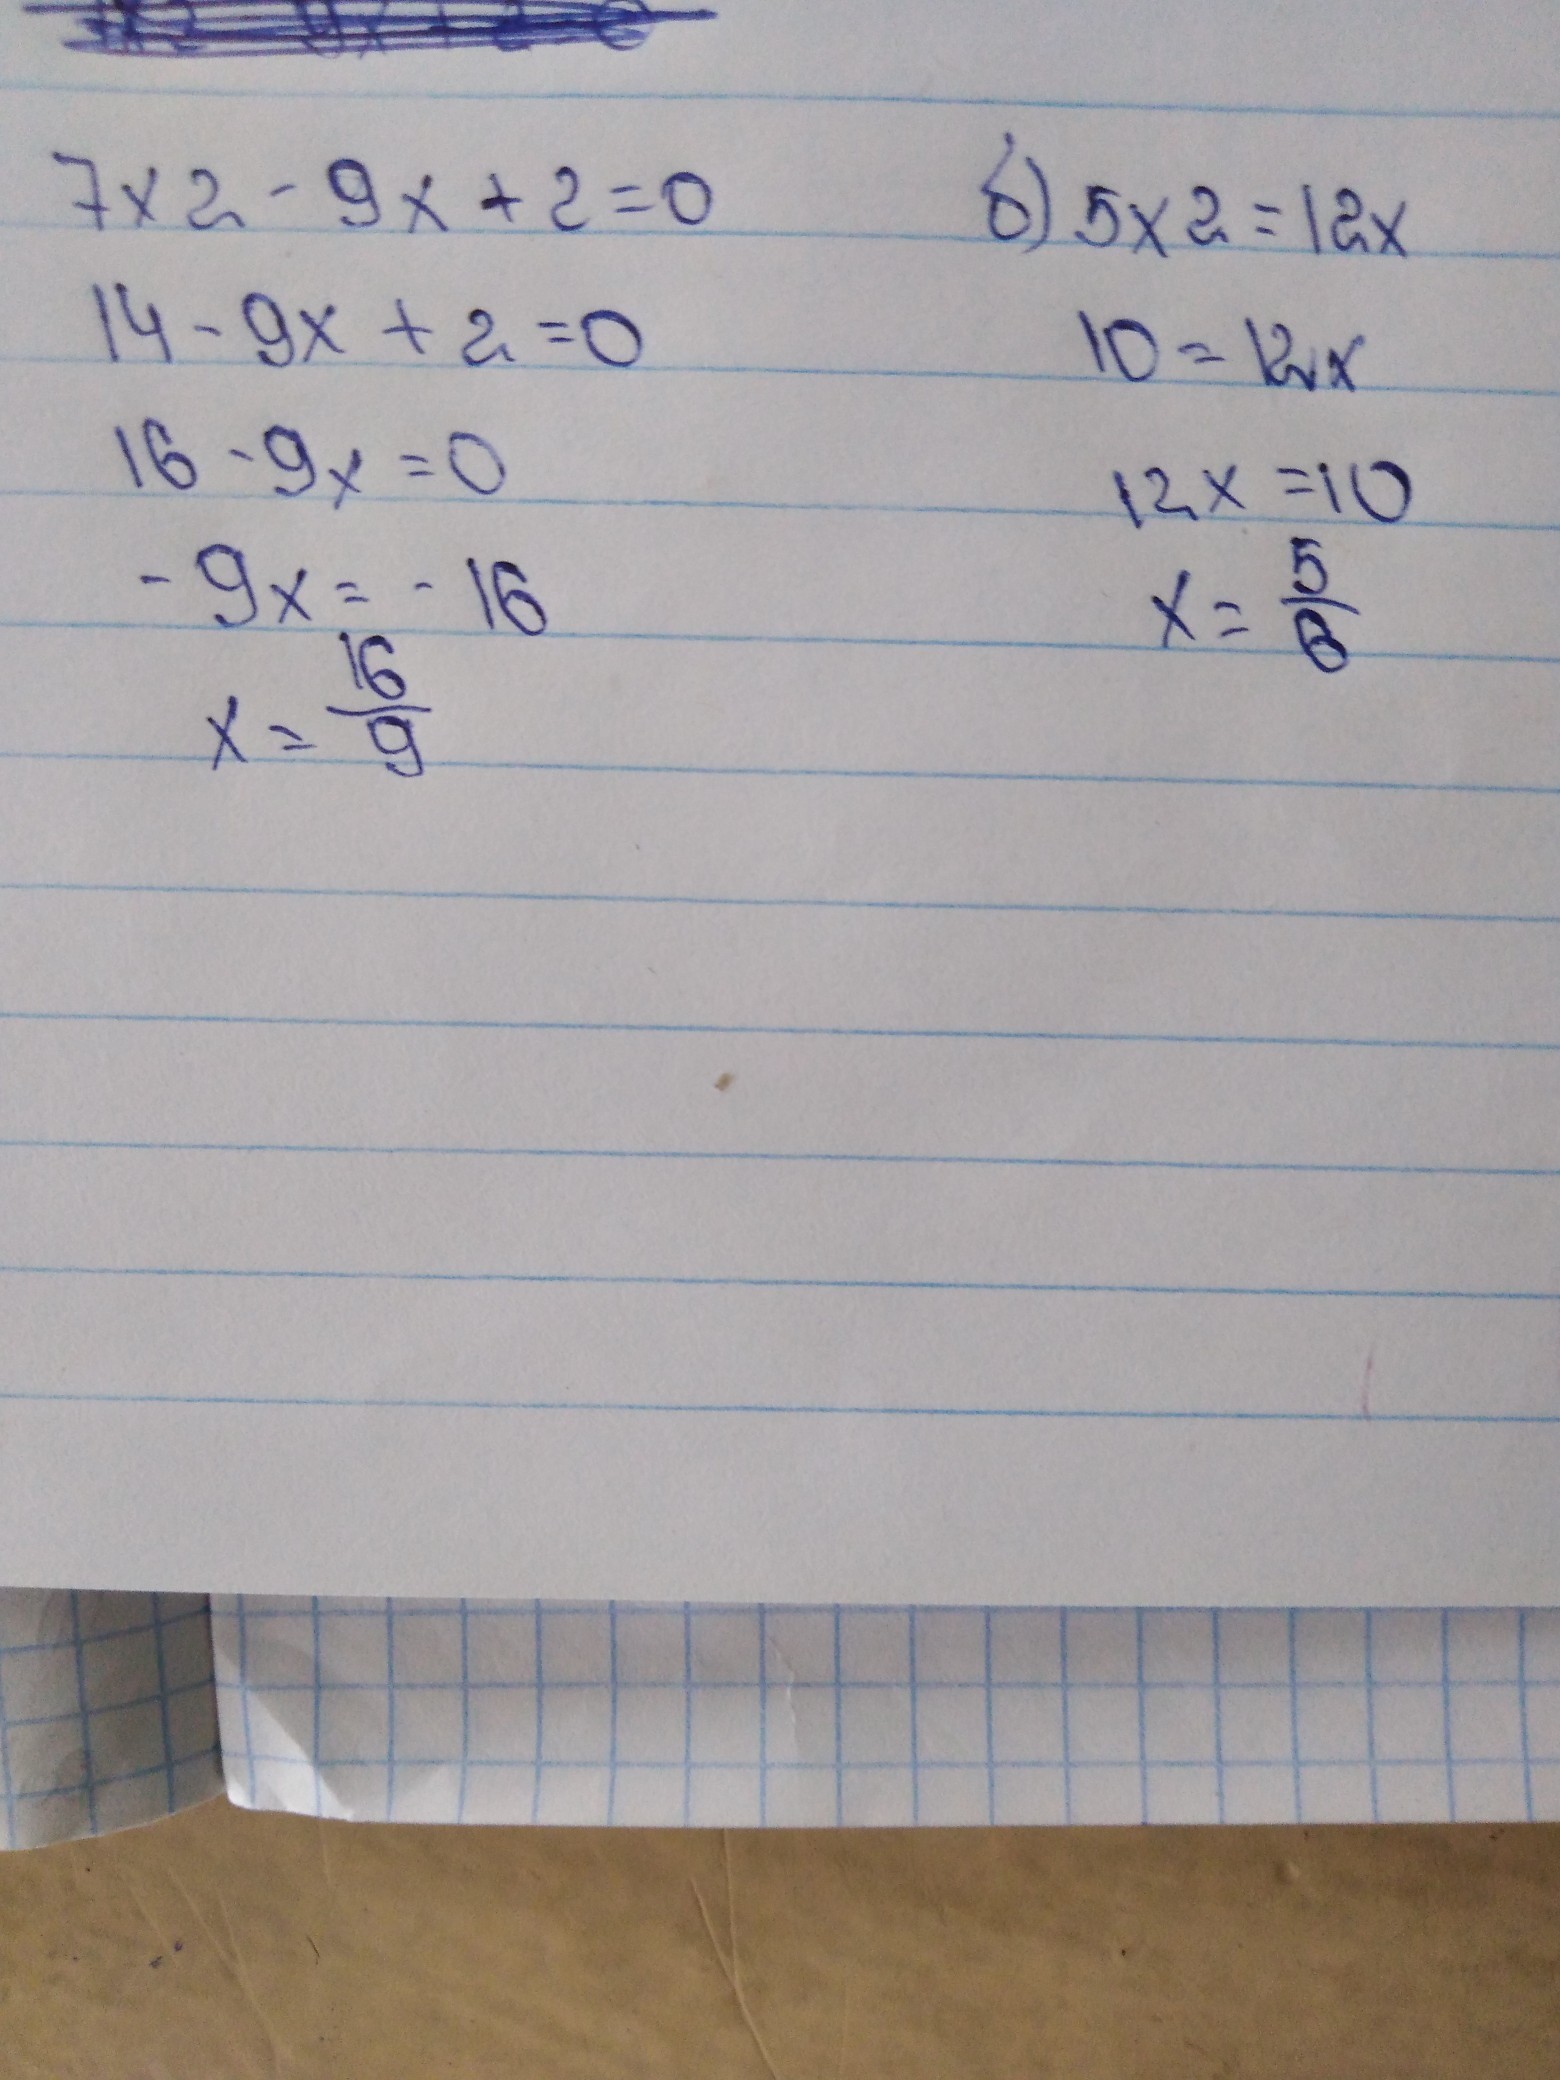 7x2 - 9x + 2 = 0
14 - 9x + 2 = 0
16 - 9x = 0
- 9x = - 16
x = 16/9
б) 5x2 = 12x
10 = 12x
12x = 10
x = 5/6